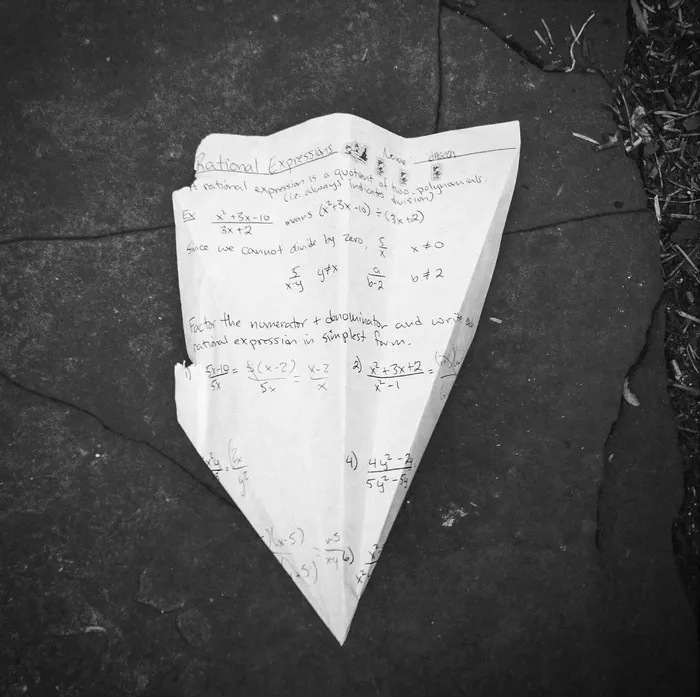 Rational Expressions Name Jason
A rational expression is a quotient of two polynomials.
(i.e. always indicates division)
Ex x²+3x-10/3x+2 means (x²+3x-10) ÷ (3x+2)
Since we cannot divide by zero, 5/x x≠0
5/x-y y≠x a/b-2 b≠2
Factor the numerator + denominator and write
rational expression in simplest form.
1) 5x-10/5x = 5(x-2)/5x = x-2/x 2) x²+3x+2/x²-1 =
4) 4y²-2y/5y²-5y
(x-5)